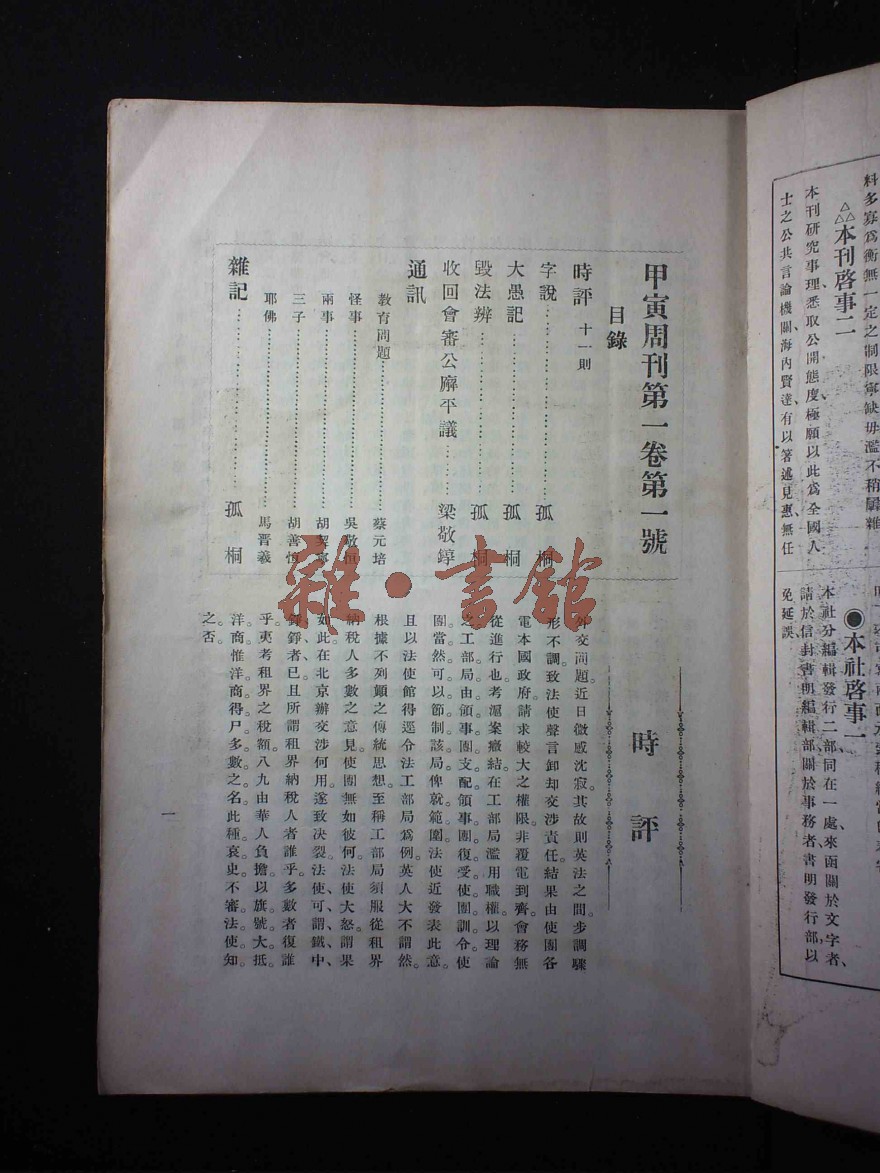 料多寡爲衡無一定之制限寧缺毋濫不稍
△△△本刊啓事二
本刊研究事理悉取公開態度極願以此爲全國人
士之公共言論機關海內賢達有以著述見惠無任
●本社啓事一
本社分編輯發行二部同在一處來函關於文字者、
請於信封書明編輯部關於事務者書明發行部以
免延誤
甲寅周刊第一卷第一號
目錄
時評 十一則
字說 孤桐
大愚記 孤桐
毀法辨 孤桐
收回會審公廨平議 梁敬錞
通訊
教育問題 蔡元培
怪事 吳敬恒
兩事 胡契寧
三子 胡善恆
耶佛 馬晋羲
雜記 孤桐
時評
外交問題近日微感沈寂。其故則英法之間步調驟
形不調。致法使聲言卸却交涉責任。結果由使團各
電本國政府請求較大之權限。非覆電到齊。會務無
從進行也。考滬案癥結。在工部局濫用職權。以理論
之。工部局由領事團支配。領事團復受使團訓令。使
團當然可以節制該局。俾就範圍。法使近發表此意。
且以法使館得逕令法工部局爲例。英人大不謂然。
根據不列顛之傳統思想。至稱工部局須服從租界
納稅人多數之意見。使團無如彼何。法使大怒。謂果
如此。在北京辦交涉何用。遂致決裂。法使、可、謂、鐵、中、
錚、錚、者、已。且所謂租界納稅人者誰乎。多數者復誰
乎。夷考租界之稅額。八九由華人負擔。以旗號大抵。
洋商。惟洋商得尸多數之名。此種哀史。不審法使知。
之否。
一
雜·書館